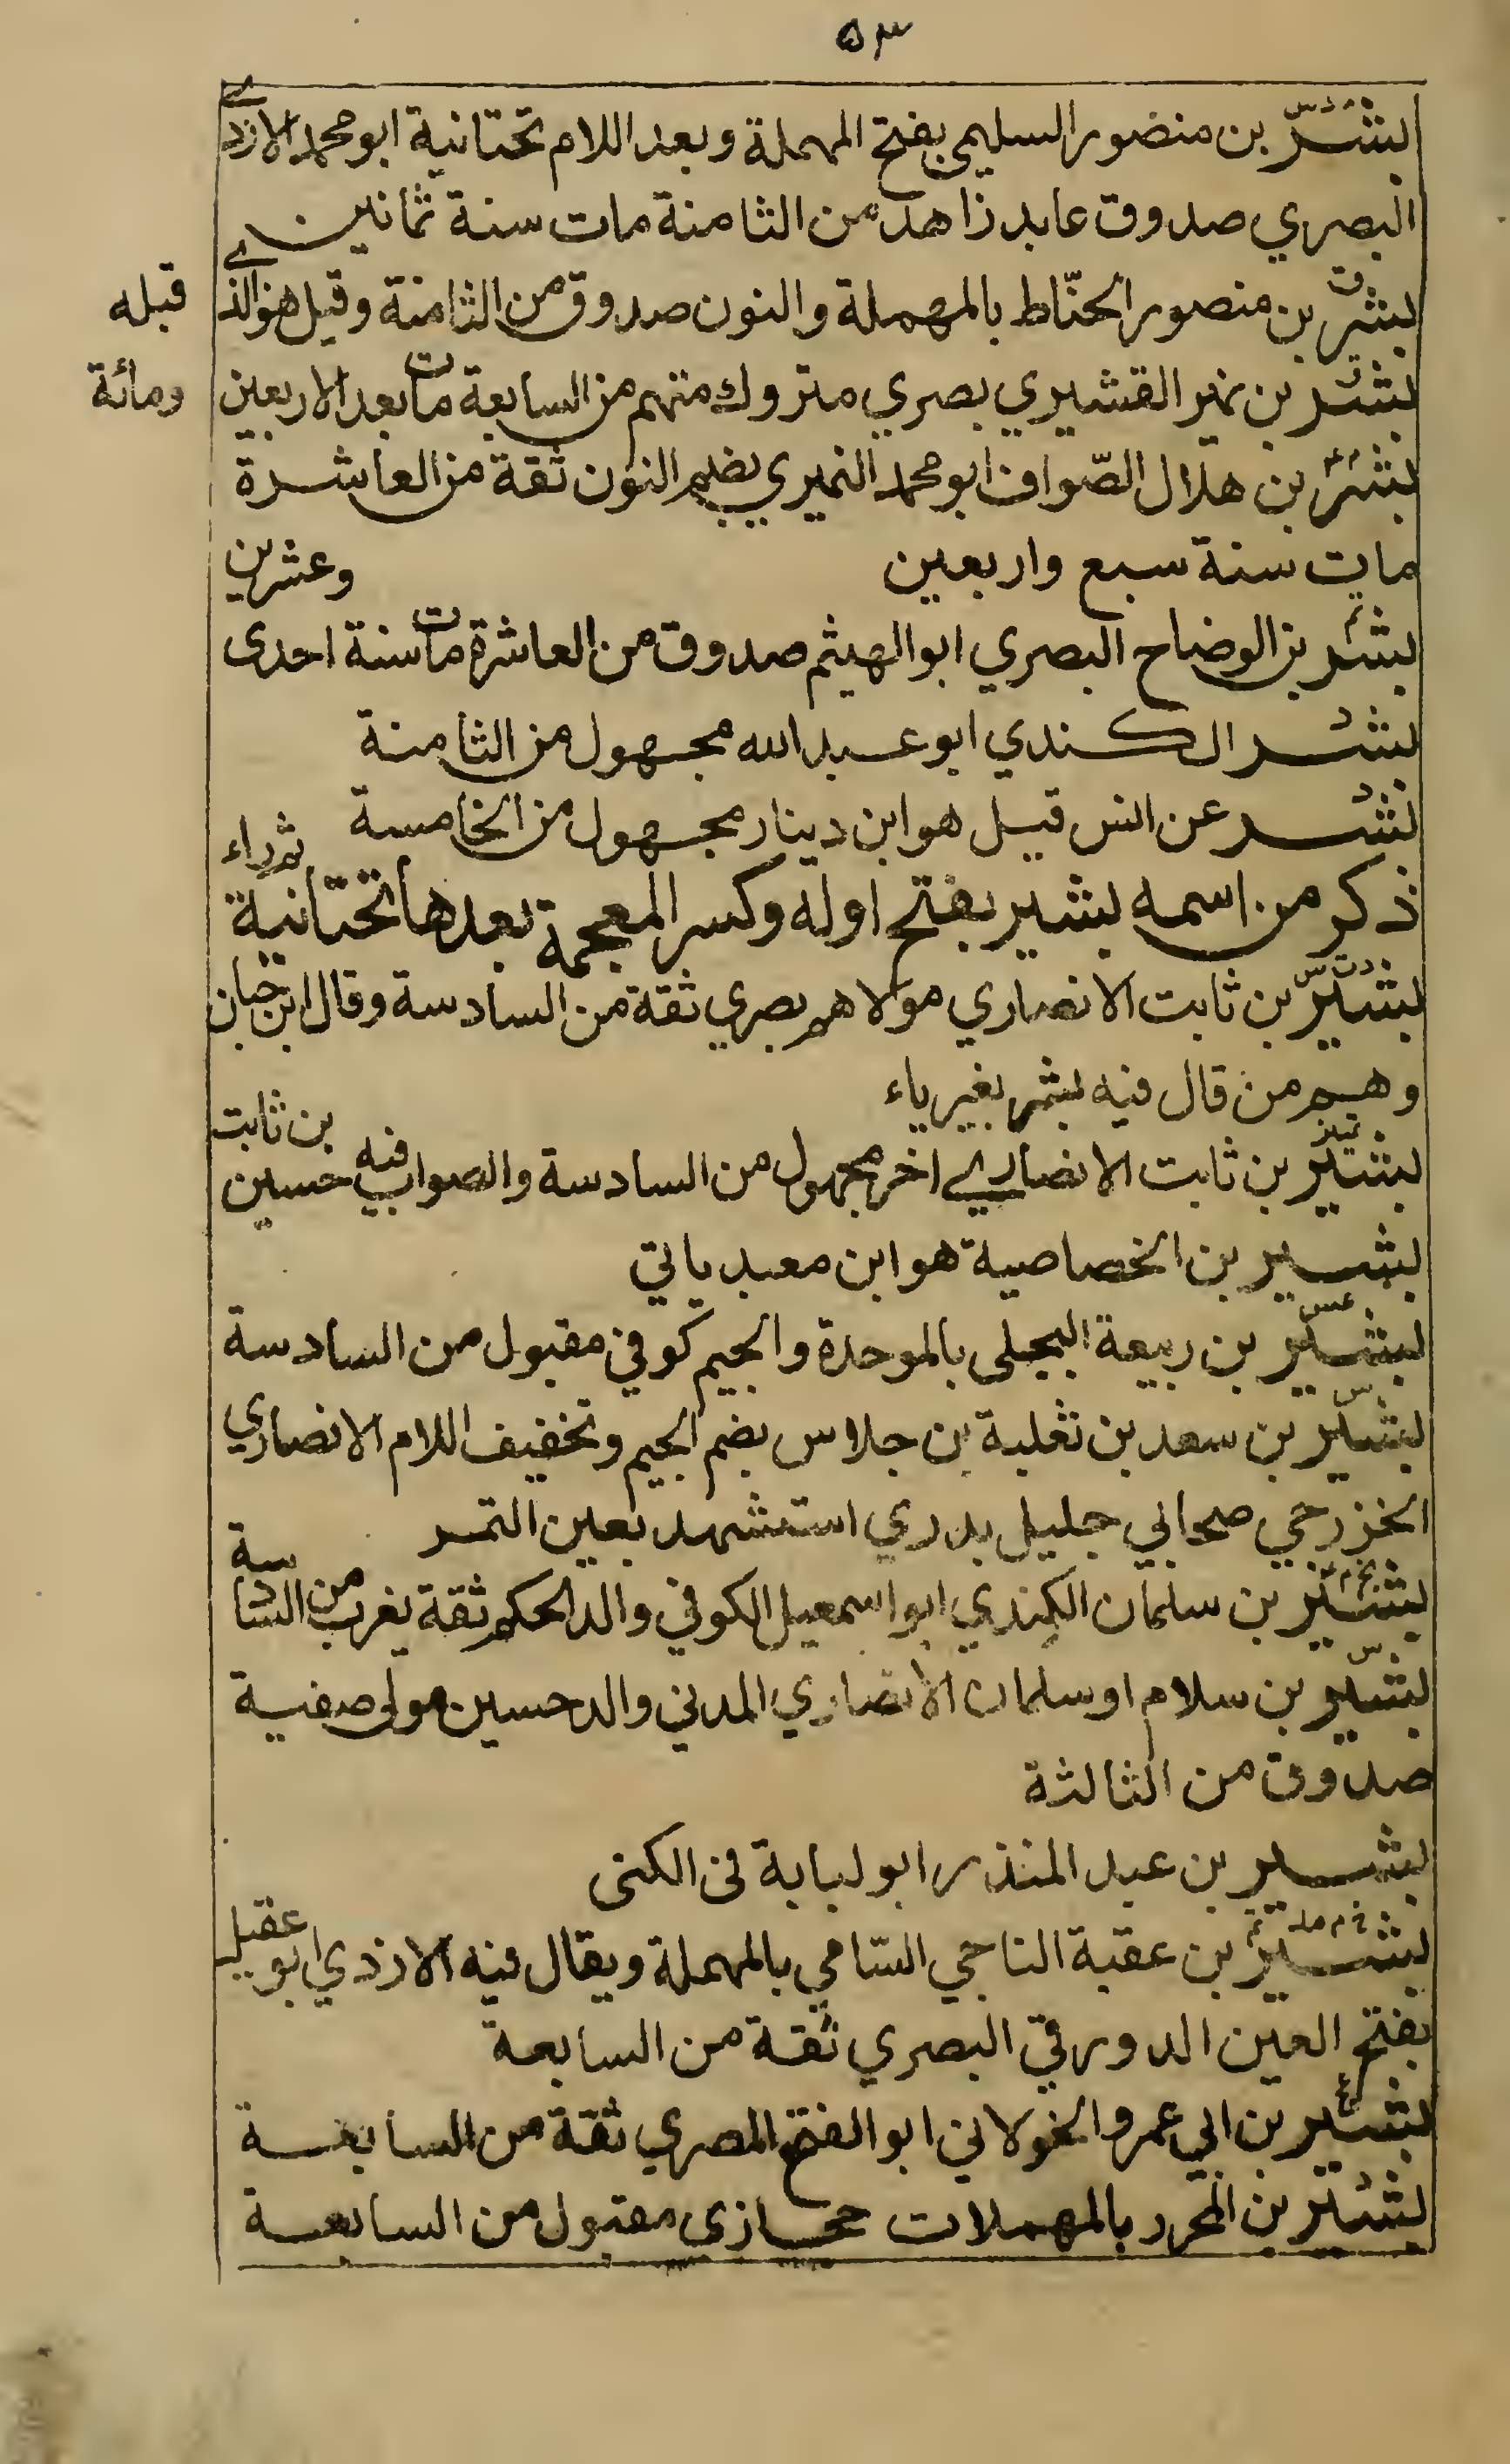 ٥٣
بشر بن منصور السليمي بفتح المهملة وبعد اللام تحتانية ابو محمد الازدي
البصري صدوق عابد زاهد من الثامنة مات سنة ثمانين
بشر بن منصور الحنّاط بالمهملة والنون صدوق من الثامنة وقيل هو الذي قبله
بشر بن نمير القشيري بصري متروك متهم من السابعة مات بعد الاربعين ومائة
بشر بن هلال الصّواف ابو محمد النميري بضم النون ثقة من العاشرة
مات سنة سبع واربعين
بشر بن الوضاح البصري ابو الهيثم صدوق من العاشرة مات سنة احدى وعشرين
بشر الكندي ابو عبد الله مجهول من الثامنة
بشر عن انس قيل هو ابن دينار مجهول من الخامسة
ذكر من اسمه بشير بفتح اوله وكسر المعجمة بعدها تحتانية ثم راء
بشير بن ثابت الانصاري مولاهم بصري ثقة من السادسة وقال ابن حبان
وهم من قال فيه بشر بغير ياء
بشير بن ثابت الانصاري اخر مجهول من السادسة والصواب فيه حسين بن ثابت
بشير بن الخصاصية هو ابن معبد ياتي
بشير بن ربيعة البجلي بالموحدة والجيم كوفي مقبول من السادسة
بشير بن سعد بن ثعلبة بن جلاس بضم الجيم وتخفيف اللام الانصاري
الخزرجي صحابي جليل بدري استشهد بعين التمر
بشير بن سلمان الكندي ابو اسمعيل الكوفي والد الحكم ثقة يغرب من السادسة
بشير بن سلام او سلمان الانصاري المدني والد حسين مولى صفية
صدوق من الثالثة
بشير بن عبد المنذر ابو لبابة في الكنى
بشير بن عقبة الناجي السّامي بالمهملة ويقال فيه الازدي ابو عقيل
بفتح العين الدورقي البصري ثقة من السابعة
بشير بن ابي عمرو الخولاني ابو الفتح المصري ثقة من السابعة
بشير بن المحرر بالمهملات حجازي مقبول من السابعة